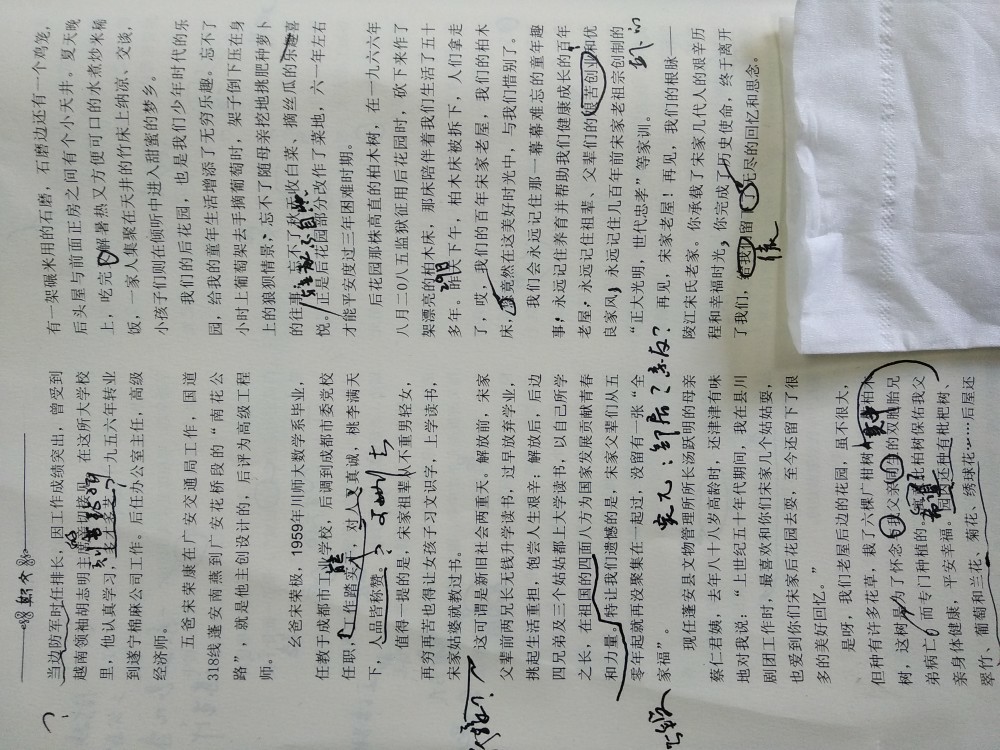 斯兮
当边防军时任排长，因工作成绩突出，曾受到
越南领袖胡志明主席亲切接见，在这所大学校
里，他认真学习，多才多艺，一九五六年转业
到遂宁棉麻公司工作。后任办公室主任，高级
经济师。
五爸宋荣康在广安交通局工作，国道
318线蓬安南燕到广安花桥段的“南花公
路”，就是他主创设计的，后评为高级工程
师。
幺爸宋荣极，1959年川师大数学系毕业，
任教于成都市工业学校，后调到成都市委党校
任职，工作踏实，对人真诚，桃李满天
下，人品皆称赞。
值得一提的是，宋家祖辈从不重男轻女，
再穷再苦也得让女孩子习文识字，上学读书，
宋家姑婆就教过书。
这可谓是新旧社会两重天。解放前，宋家
父辈前两兄长无钱升学读书，过早放弃学业，
挑起生活重担，饱尝人生艰辛，解放后，后边
四兄弟及三个姑姑都上大学读书，以自己所学
之长，在祖国的四面八方为国家发展贡献青春
和力量。待让我们遗憾的是：宋家父辈们从五
零年起就再没聚集在一起过，没留有一张“全
家福”。
现任蓬安县文物管理所所长汤跃明的母亲
蔡仁君姨，去年八十八岁高龄时，还津津有味
地对我说：“上世纪五十年代期间，我在县川
剧团工作时，最喜欢和你们宋家几个姑姑耍，
也爱到你们宋家后花园去耍，至今还留下了很
多的美好回忆。”
是呀，我们老屋后边的花园，虽不很大，
但种有许多花草，栽了六棵广柑树，柏木
树，这树是为了怀念我父亲的双胞胎兄
弟病亡，而专门种植的。此柏树保佑我父
亲身体健康，平安幸福。园内还种有枇杷树、
葡萄和兰花、菊花、绣球花……后屋还
翠竹、
有一架碾米用的石磨，石磨边还有一个鸡笼，
后头屋与前面正房之间有个小天井。夏天晚
上，吃完解暑热又方便可口的水煮炒米稀
饭，一家人集聚在天井的竹床上纳凉、交谈，
小孩子们则在倾听中进入甜蜜的梦乡。
我们的后花园，也是我们少年时代的乐
园，给我的童年生活增添了无穷乐趣。忘不了
小时上葡萄架去手摘葡萄时，架子倒下压在身
上的狼狈情景；忘不了随母亲挖地挑肥种萝卜
的往事；忘不了秋天收白菜、摘丝瓜的乐趣喜
悦。正是后花园部分改作了菜地，六一年左右
才能平安度过三年困难时期。
后花园那株高直的柏木树，在一九六六年
八月二0八五监狱征用后花园时，砍下来作了
架漂亮的柏木床，那床陪伴着我们生活了五十
多年。昨天下午，柏木床被拆下，人们拿走
了，哎，我们的百年宋家老屋，我们的柏木
床，竟然在这美好时光中，与我们惜别了。
我们会永远记住那一幕幕难忘的童年趣
事，永远记住养育并帮助我们健康成长的百年
老屋，永远记住祖辈、父辈们的艰苦创业和优
良家风，永远记住几百年前宋家老祖宗创制的
“正大光明，世代忠孝”等家训。
再见，宋家老屋！再见，我们的根脉——
陵江宋氏老家。你承载了宋家几代人的艰辛历
程和幸福时光，你完成了历史使命，终于离开
了我们，给我们留了无尽的回忆和思念。